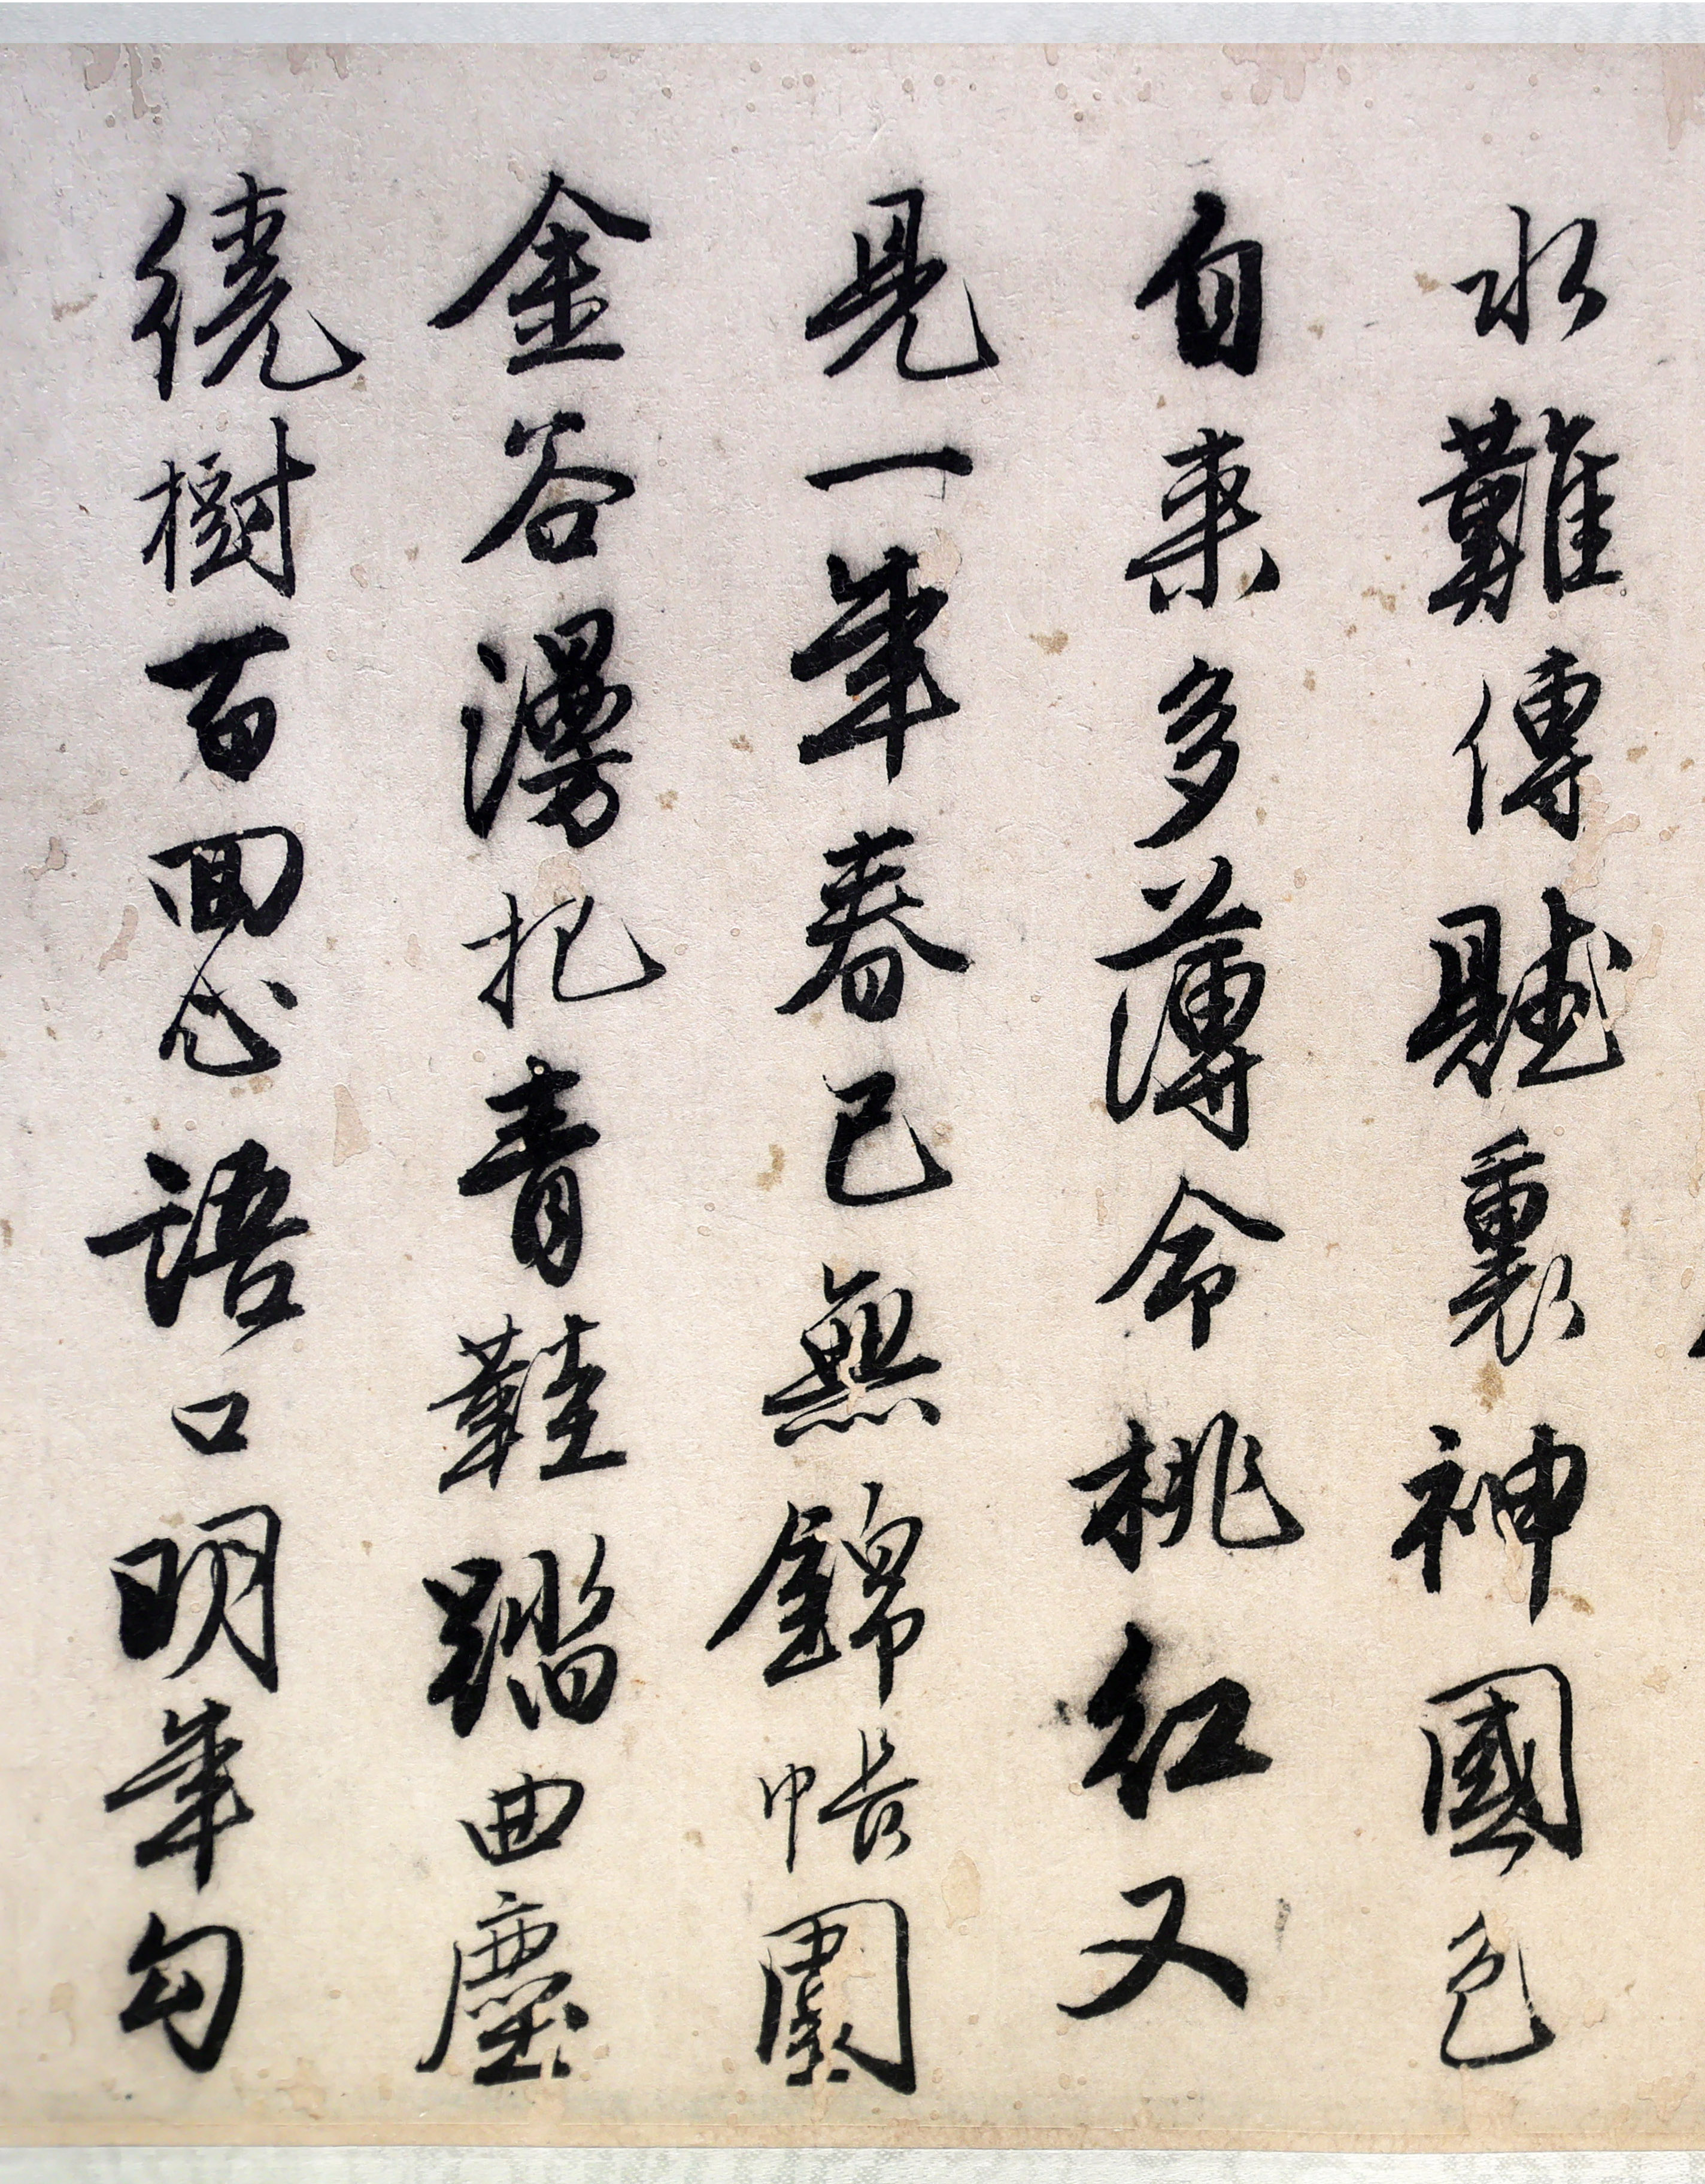 水難傳賦裏神國色
自來多薄命桃紅又
見一年春已無錦帳圍
金谷漫把青鞋踏曲塵
繞樹百回心語口明年勾